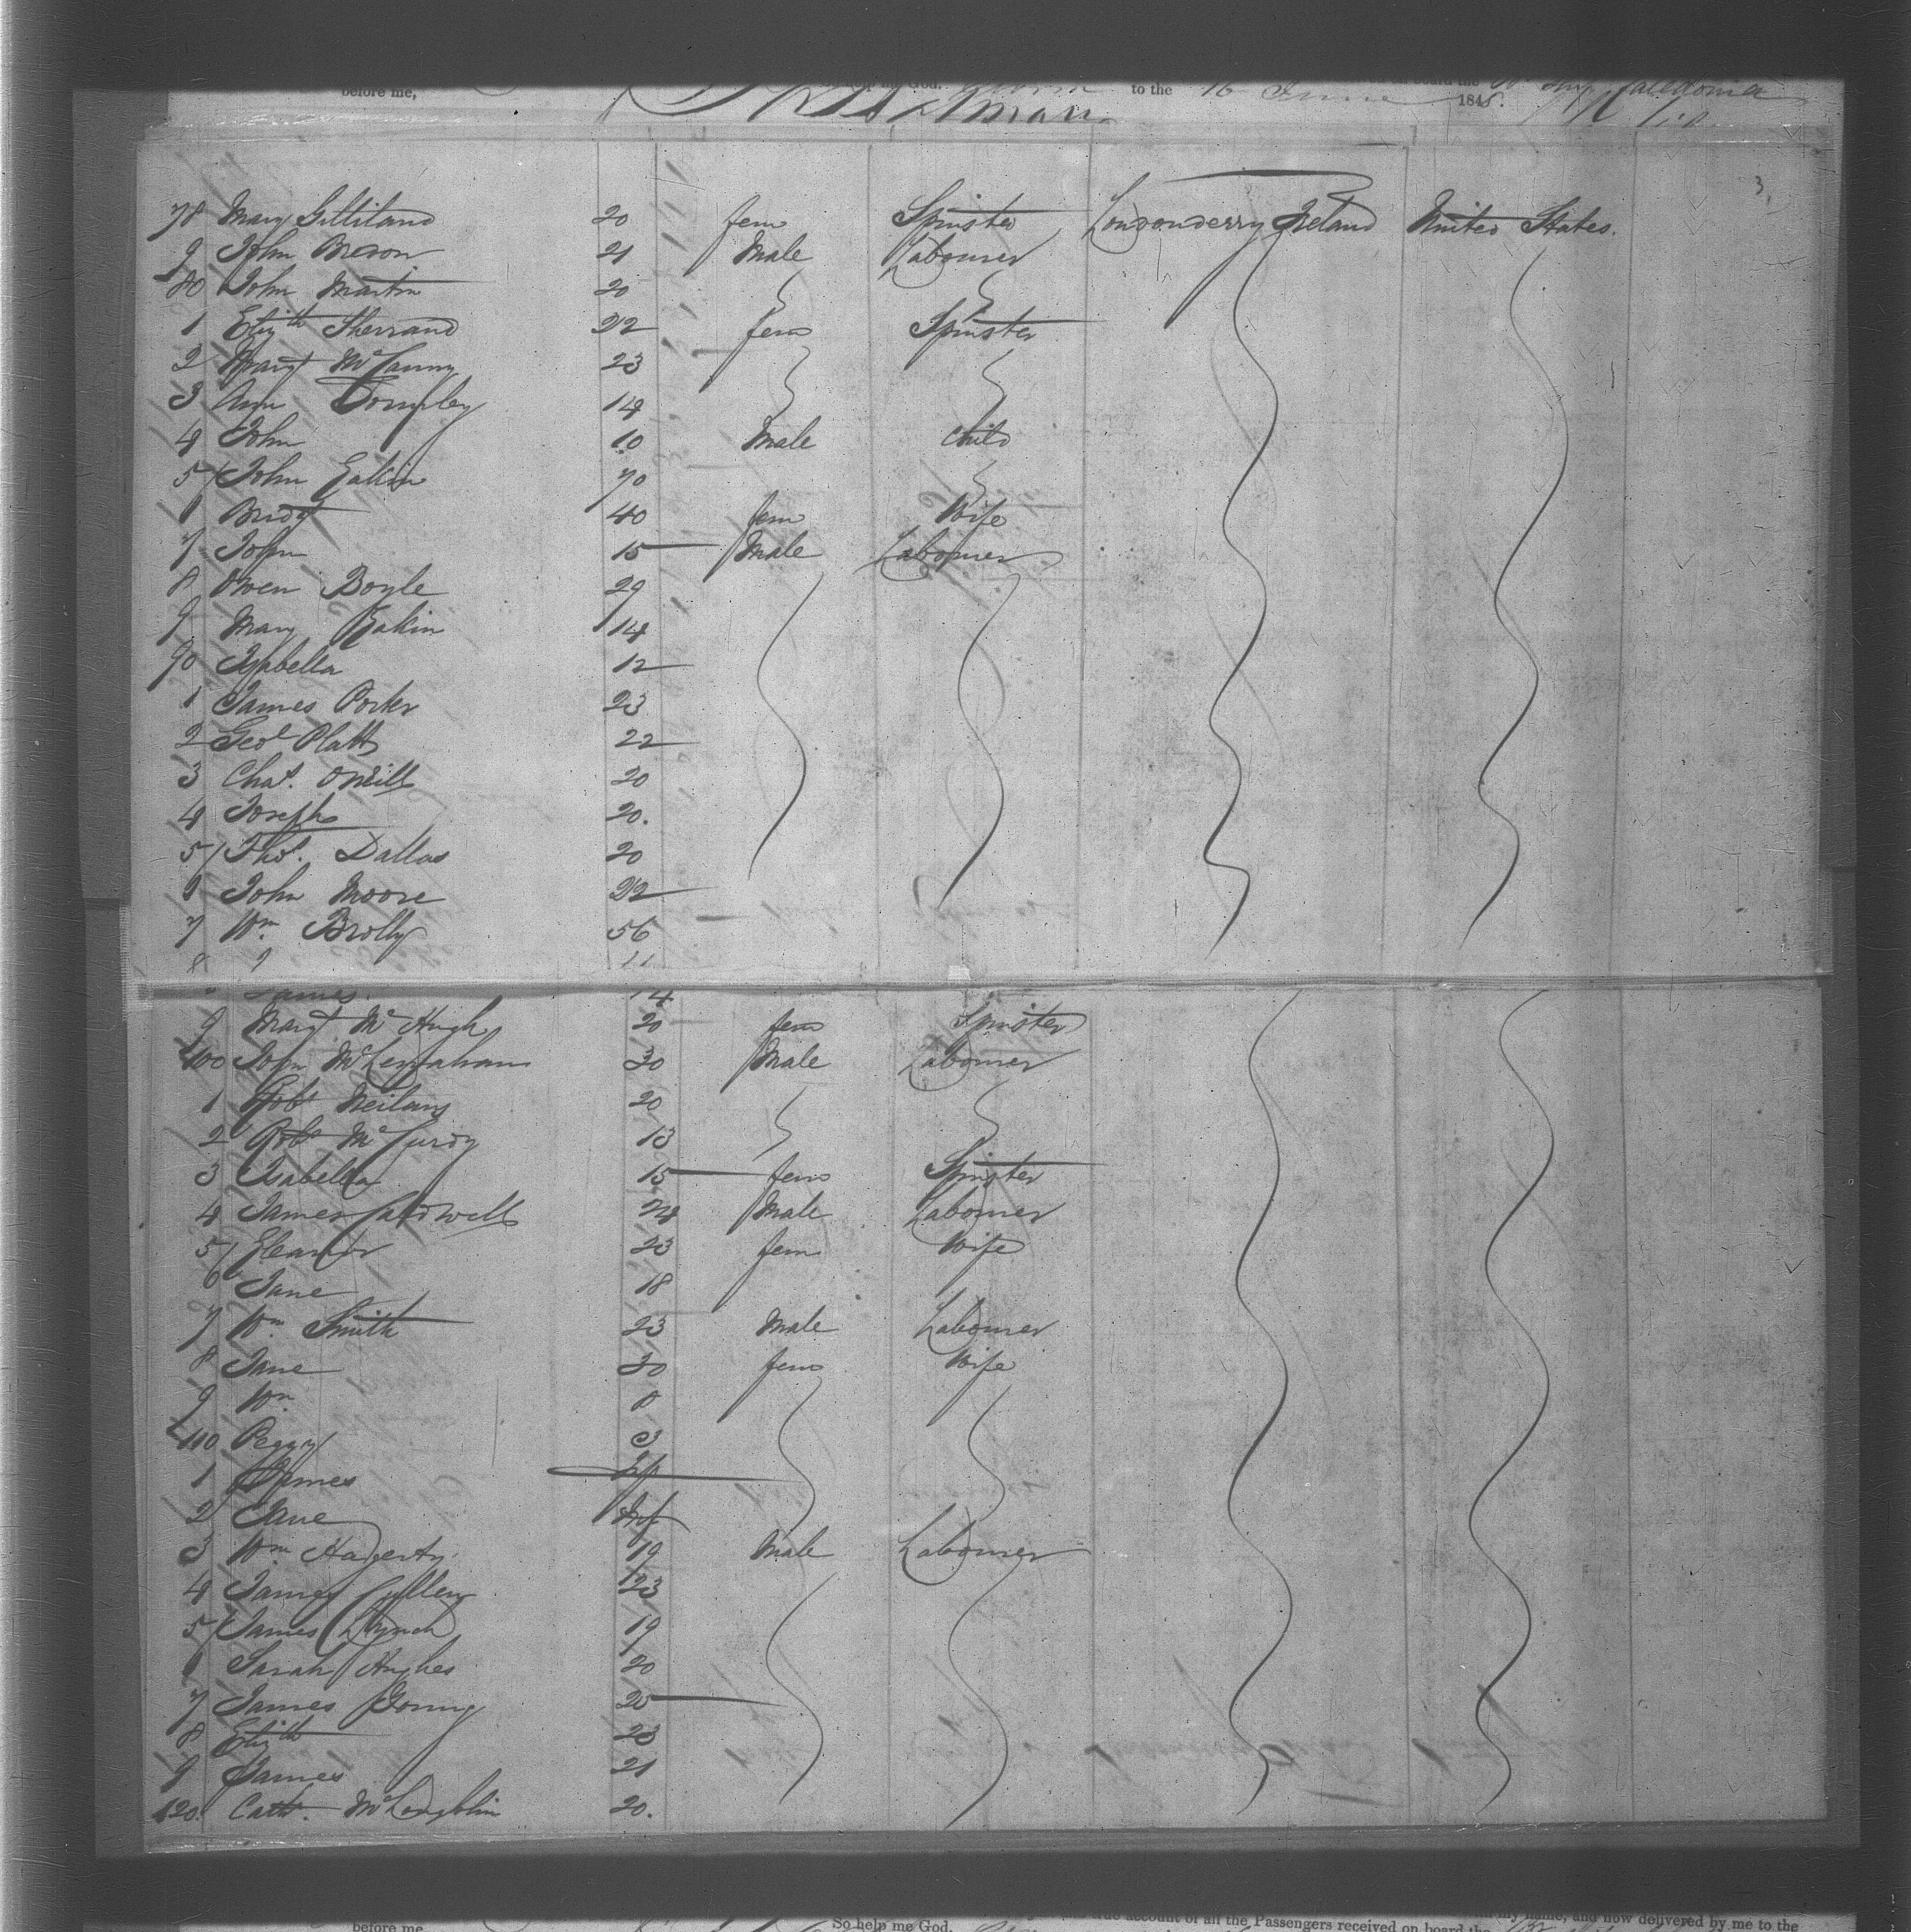 before me, to the 16 June 1848. Caledonia
3
78 Mary Gilliland 20 fem Spinster Londonderry Ireland United States.
9 John 21 Male Labourer
80 John Martin 20
1 Elizth Sherrand 22 fem Spinster
2 Margt McCanny 23
3 Ann 14
4 John 10 Male Child
5 John Eakin 70
6 Bridgt 40 fem Wife
7 John 15 Male Labourer
8 Owen Boyle 29
9 Mary Eakin 14
90 Isabella 12
1 James Porter 23
2 Geoe Platt 22
3 Chas. ONeill 20
4 Joseph 20.
5 Thos. Dallas 20
6 John Moore 22
7 Wm. Brolly 56
8 James. 14
9 Margt McHugh 20 fem Spinster
100 John 30 Male Labourer
1 Robt 20
2 Robt McCurdy 13
3 Isabella 15 fem Spinster
4 James Caldwell 24 Male Labourer
5 Eleanor 23 fem Wife
6 Jane 18
7 Wm Smith 23 Male Labourer
8 Jane 30 fem Wife
9 Wm
110 Peggy 3
1 James Inf
2 Jane Inf
3 Wm Hagerty 19 Male Labourer
4 James Cullen 23
5 James Lynch 19
6 Sarah Hughes 20
7 James Young 25
8 Elizth 23
9 James 21
120. Cath. McLoughlin 20.
before me
So help me God.
account of all the Passengers received on board the
my name, and now delivered by me to the